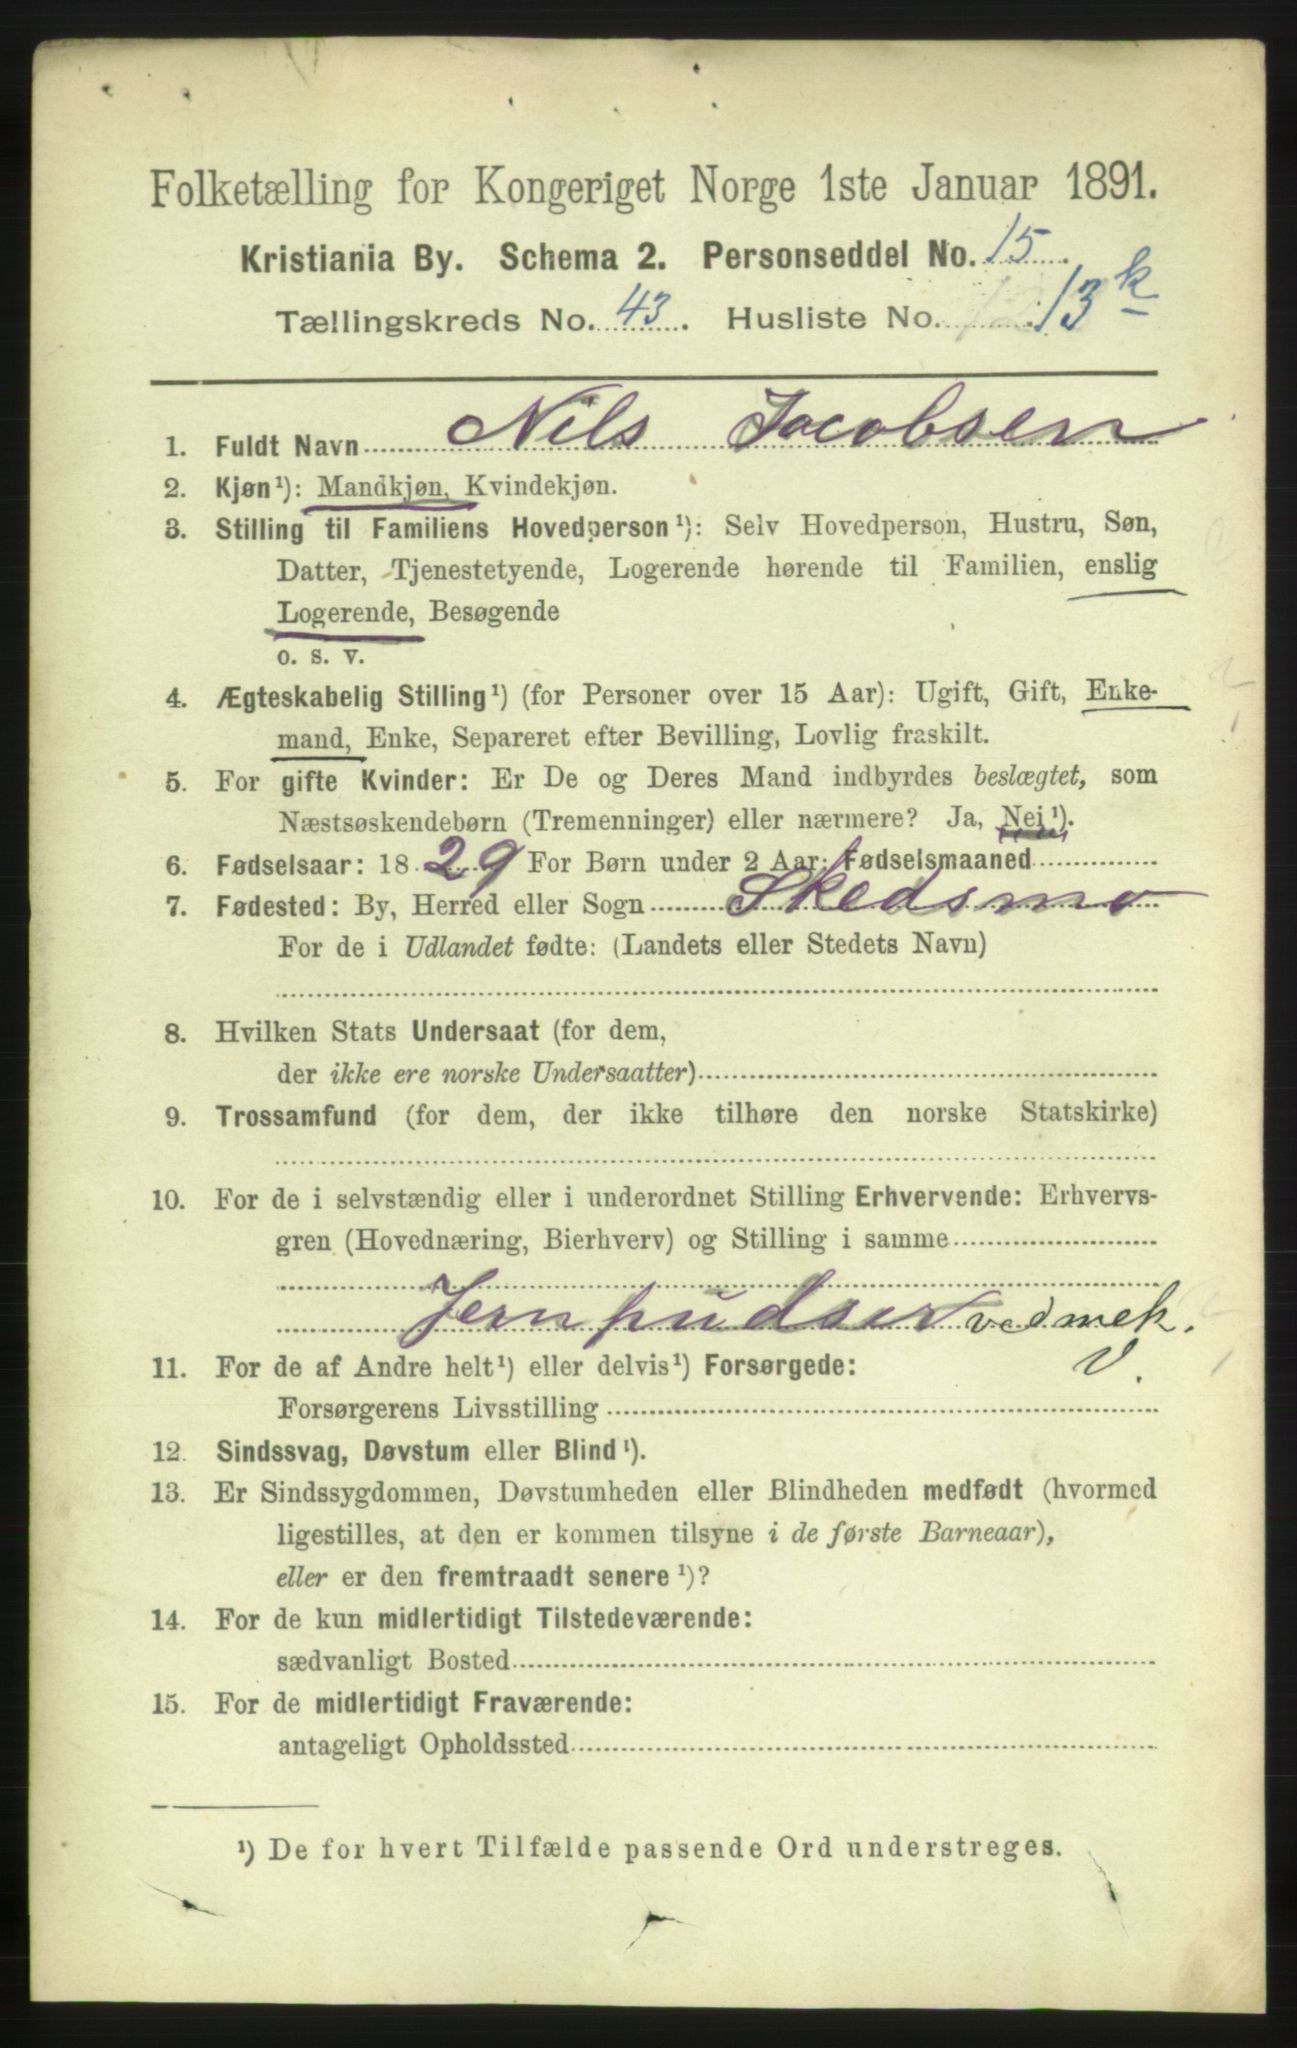 Folketælling for Kongeriget Norge 1ste Januar 1891.
Kristiania By. Schema 2. Personseddel No. 15.
Tællingskreds No. 43. Husliste No. 13 k
1. Fuldt Navn Nils Jacobsen
2. Kjøn¹): Mandkjøn, Kvindekjøn.
3. Stilling til Familiens Hovedperson¹): Selv Hovedperson, Hustru, Søn,
Datter, Tjenestetyende, Logerende hørende til Familien, enslig
Logerende, Besøgende
o. s. v.
4. Ægteskabelig Stilling¹) (for Personer over 15 Aar): Ugift, Gift, Enke-
mand, Enke, Separeret efter Bevilling, Lovlig fraskilt.
5. For gifte Kvinder: Er De og Deres Mand indbyrdes beslægtet, som
Næstsøskendebørn (Tremenninger) eller nærmere? Ja, Nei¹).
6. Fødselsaar: 1829 For Børn under 2 Aar: Fødselsmaaned
7. Fødested: By, Herred eller Sogn Skedsmo
For de i Udlandet fødte: (Landets eller Stedets Navn)
8. Hvilken Stats Undersaat (for dem,
der ikke ere norske Undersaatter)
9. Trossamfund (for dem, der ikke tilhøre den norske Statskirke)
10. For de i selvstændig eller i underordnet Stilling Erhvervende: Erhvervs-
gren (Hovednæring, Bierhverv) og Stilling i samme
Jernpudser ved mek.
V.
11. For de af Andre helt¹) eller delvis¹) Forsørgede:
Forsørgerens Livsstilling
12. Sindssvag, Døvstum eller Blind¹).
13. Er Sindssygdommen, Døvstumheden eller Blindheden medfødt (hvormed
ligestilles, at den er kommen tilsyne i de første Barneaar),
eller er den fremtraadt senere¹)?
14. For de kun midlertidigt Tilstedeværende:
sædvanligt Bosted
15. For de midlertidigt Fraværende:
antageligt Opholdssted
¹) De for hvert Tilfælde passende Ord understreges.